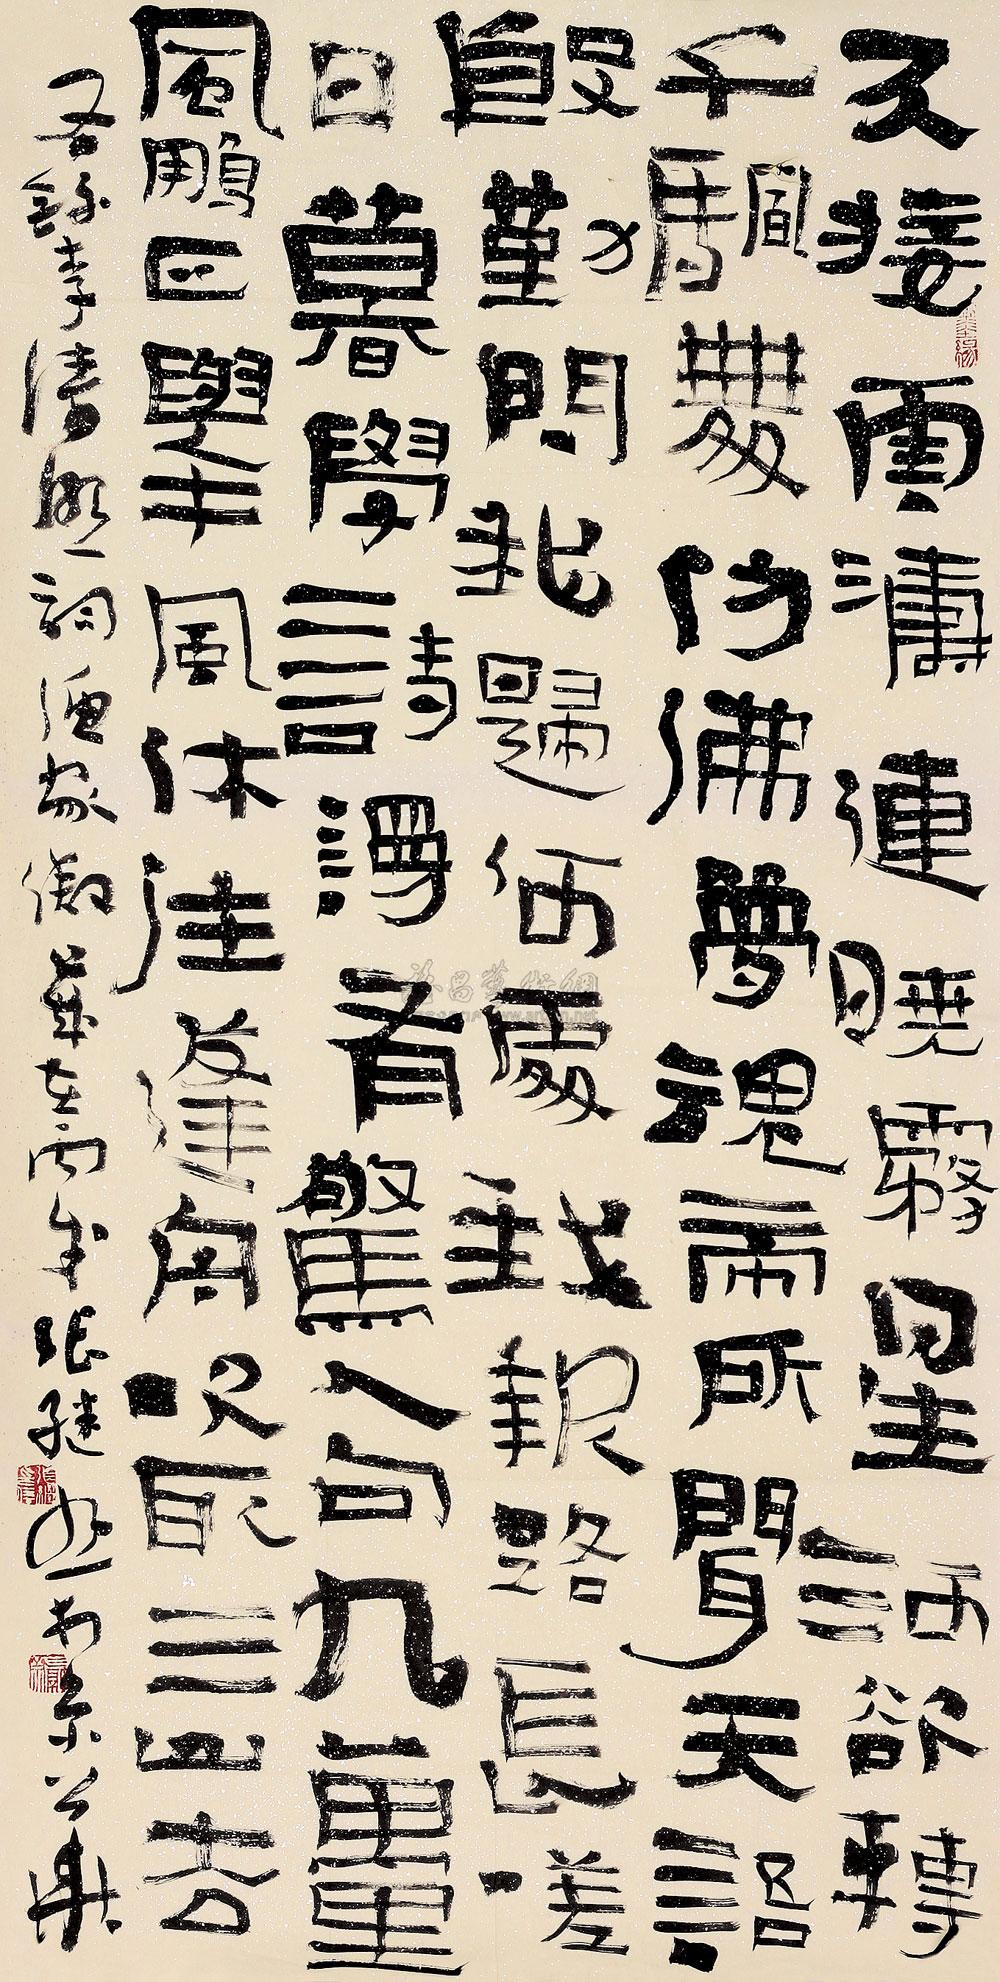 天接雲濤連曉霧星河欲轉
千颿舞仿佛夢魂帝所聞天語
殷勤問我歸何處我報路長嗟
日暮學詩謾有驚人句九萬里
風鵬正舉風休住蓬舟吹取三山去
錄李清照詞漁家傲歲在丙戌張繼於京華
雅昌藝術網